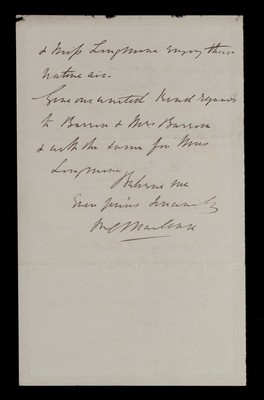 & Miss Longmore enjoy their
native air.
Give our united kind regards
to Barron & Mrs Barron
& with the same for Miss
Longmore
Believe me
Ever yours sincerely